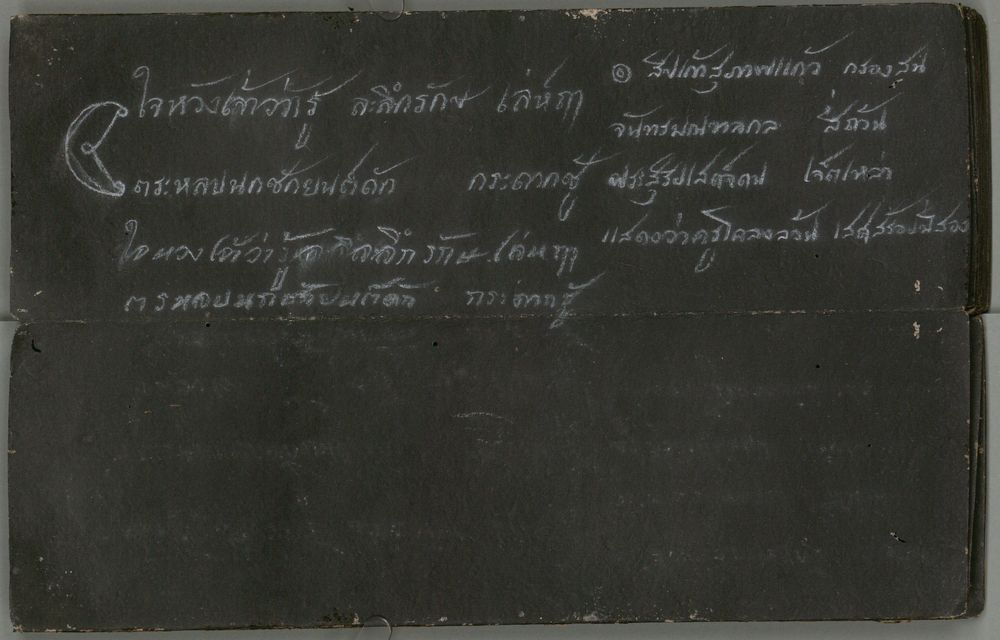 ใจหวังเจ้าว่ารู้ ละลึกรักษ เล่ห์ฤๅ
ตระหลบนกชักยนต์ดัก กระดากชู้
ใจหวงเจ้าว่ารู้ ลึกรักษ เล่หฤๅ
ตรหลบนกชักยนต์ดัก กรดากชู้
๏ สิบเก้าสุภาพแก้ว กรองสน
จันทรมณฑลกล สี่ถ้วน
พระสุริยเสด็จดน เจ็ดเหล่า
แสดงว่าครูโคลงล้วน เสศสร้อยมีสอง